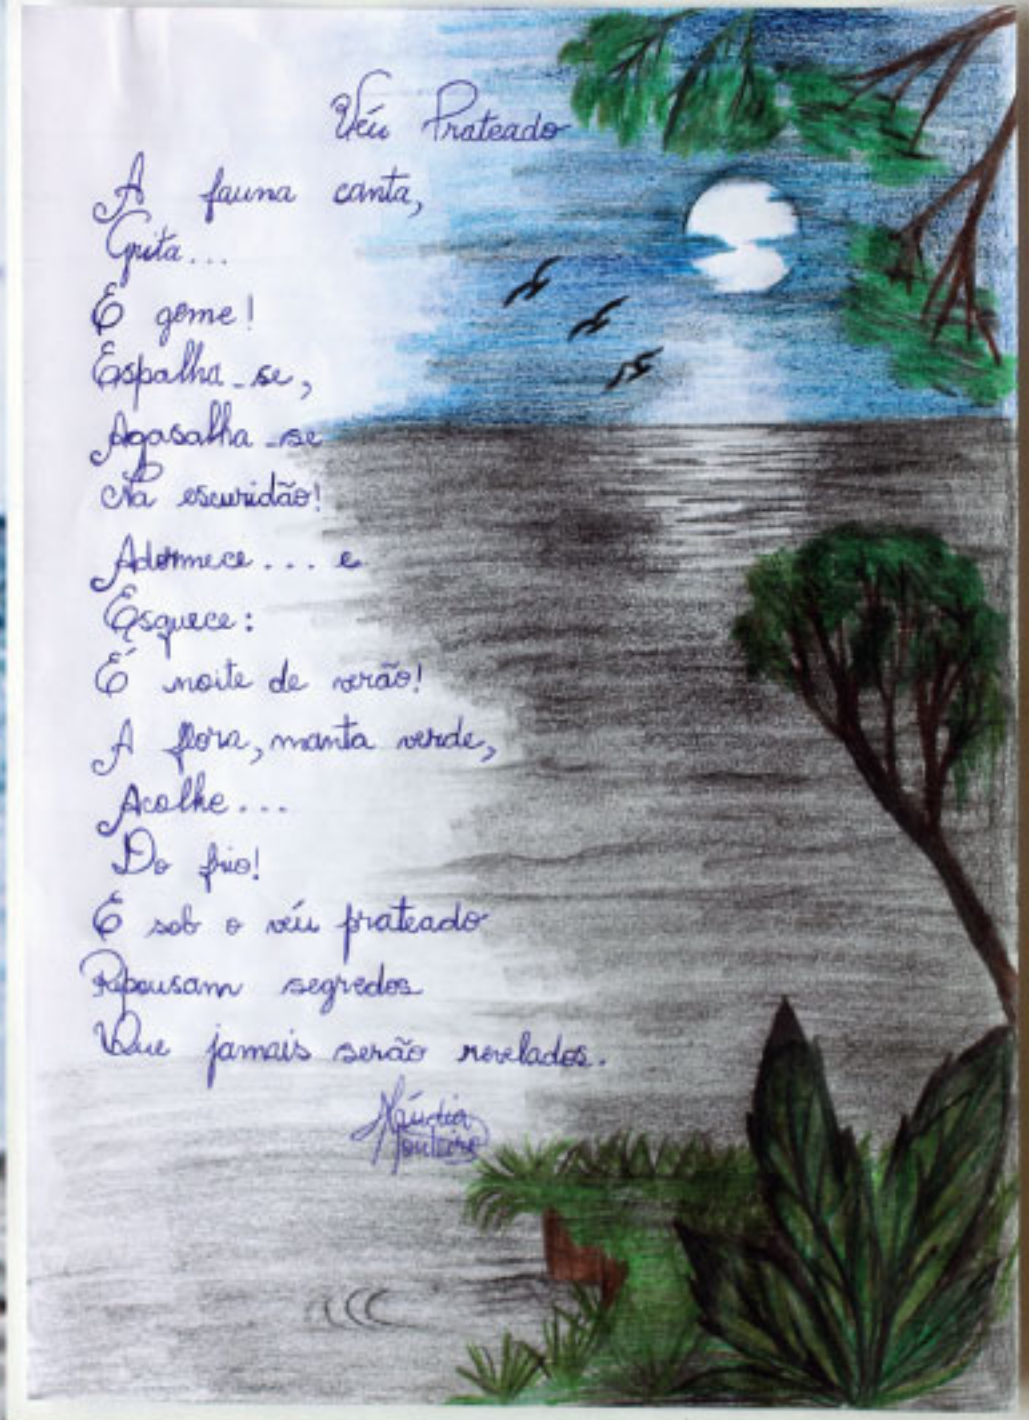 Véu Prateado
A fauna canta,
Grita...
E geme!
Espalha-se,
Agasalha-se
Na escuridão!
Adormece... e
Esquece:
É noite de verão!
A flora, manta verde,
Acolhe...
Do frio!
E sob o véu prateado
Repousam segredos
Que jamais serão revelados.
Cláudia
Monteiro